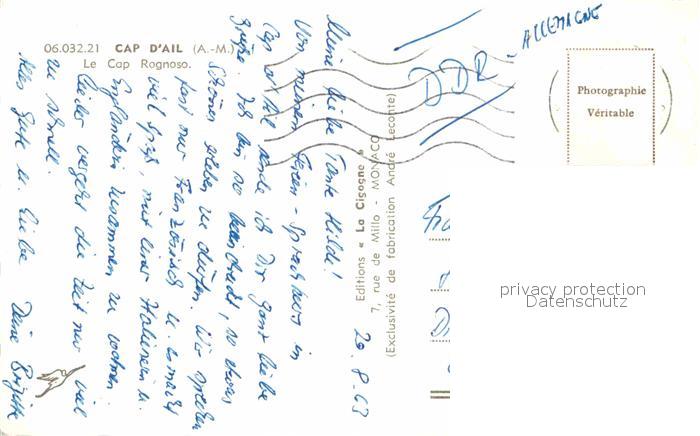 06.032.21 CAP D'AIL (A.-M.)
Le Cap Rognoso.
Meine liebe Tante Hilde!
Von meinem Ferien-Sprachkurs in
Cap d'Ail sende ich Dir ganz liebe
Grüße. Ich bin so beeindruckt, so etwas
Schönes erleben zu dürfen. Wir sprechen
fast nur Französisch u. es macht
viel Spaß, mit einer Italienerin u.
Engländerin zusammen zu wohnen
Leider vergeht die Zeit nur viel
zu schnell.
Alles Gute u. Liebe Deine Brigitte
20.8.63
Editions « La Cigogne »
7, rue de Millo - MONACO
(Exclusivité de fabrication André Leconte)
DDR - ALLEMAGNE
Photographie
Véritable
Fra
D
privacy protection
Datenschutz